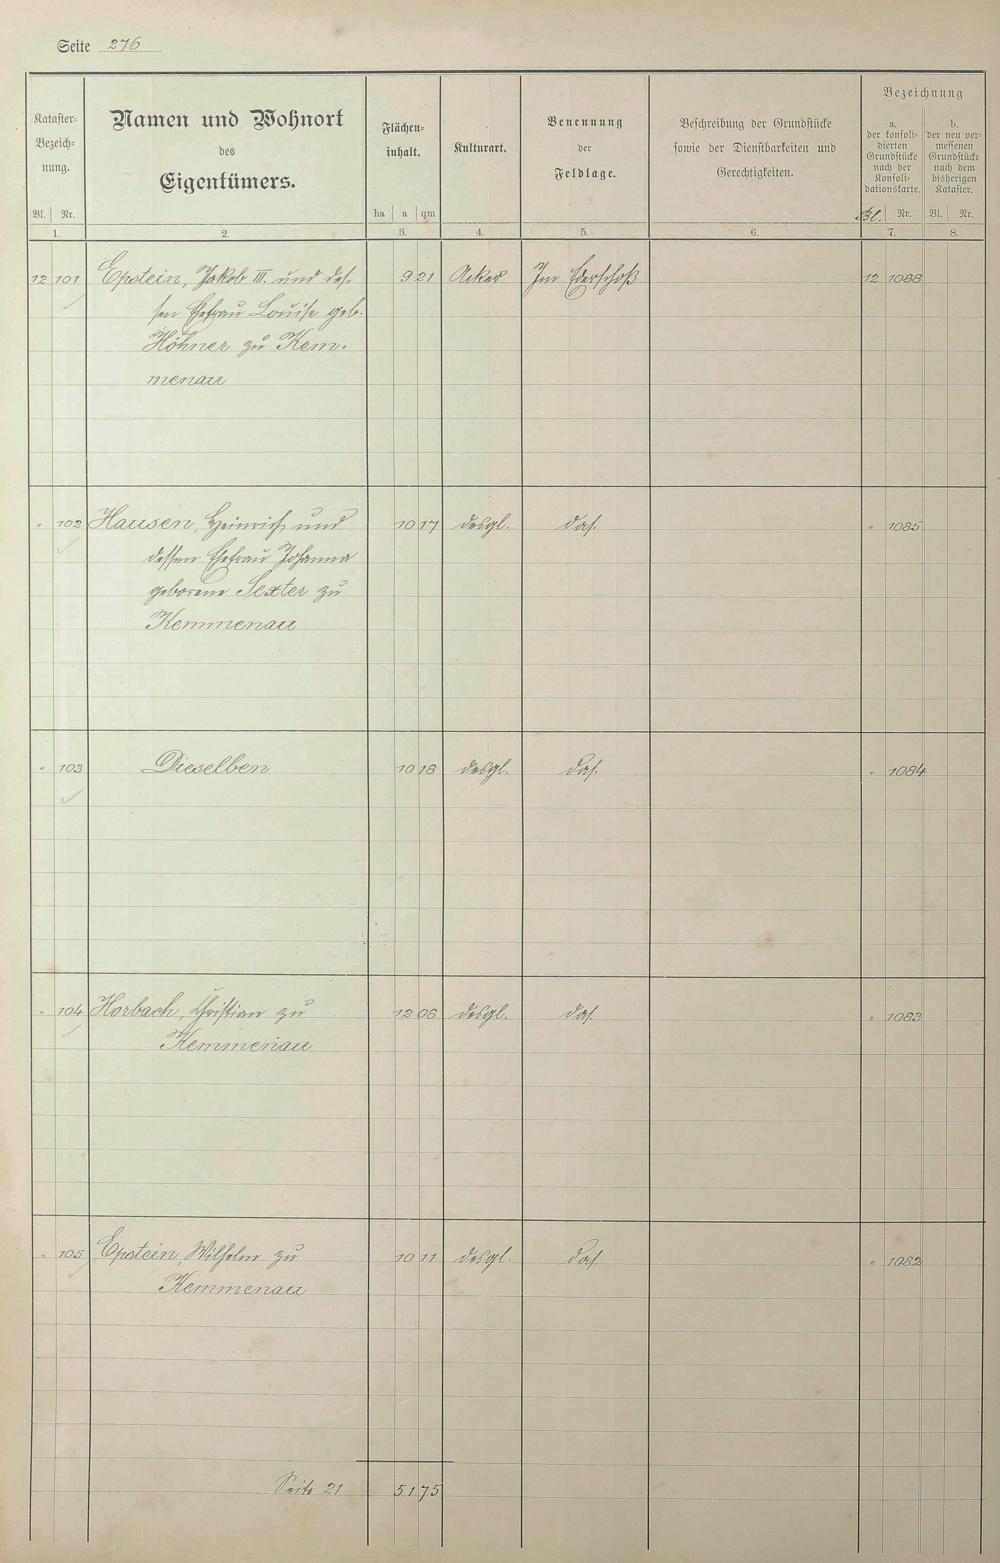 Seite 276
Kataster-
Bezeich-
nung.
Bl. Nr.
Namen und Wohnort
des
Eigentümers.
Flächen-
inhalt.
ha a qm
Kulturart.
Benennung
der
Feldlage.
Beschreibung der Grundstücke
sowie der Dienstbarkeiten und
Gerechtigkeiten.
Bezeichnung
a.
der konsoli-
dierten
Grundstücke
nach der
Konsoli-
dationskarte.
Bl. Nr.
b.
der neu ver-
messenen
Grundstücke
nach dem
bisherigen
Kataster.
Bl. Nr.
1. 2. 3. 4. 5. 6. 7. 8.
12 101 Epstein, Jakob III. und des- 9 21 Acker Im 12 1088
sen Ehefrau Louise geb.
Höhner zu Kem-
menau
" 102 Hausen, Heinrich und 10 17 desgl. das. " 1085
dessen Ehefrau Johanna
geborene Sexter zu
Kemmenau
" 103 Dieselben 10 18 desgl. das. " 1084
" 104 Horbach, Christian zu 12 08 desgl. das. " 1083
Kemmenau
" 105 Epstein, Wilhelm zu 10 11 desgl. das. " 1082
Kemmenau
Seite 21 51 75